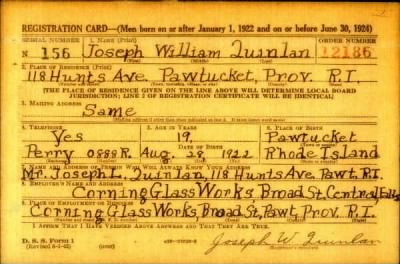 REGISTRATION CARD—(Men born on or after January 1, 1922 and on or before June 30, 1924)
SERIAL NUMBER 1. NAME (Print) ORDER NUMBER
N 156 Joseph William Quinlan 12186
(First) (Middle) (Last)
2. PLACE OF RESIDENCE (Print)
118 Hunts Ave. Pawtucket, Prov. R.I.
(THE PLACE OF RESIDENCE GIVEN ON THE LINE ABOVE WILL DETERMINE LOCAL BOARD
JURISDICTION; LINE 2 OF REGISTRATION CERTIFICATE WILL BE IDENTICAL)
3. MAILING ADDRESS
Same
4. TELEPHONE 5. AGE IN YEARS 6. PLACE OF BIRTH
Yes 19 Pawtucket
DATE OF BIRTH
Perry 0888R. Aug. 29 1922 Rhode Island
7. NAME AND ADDRESS OF PERSON WHO WILL ALWAYS KNOW YOUR ADDRESS
Mr. Joseph L. Quinlan, 118 Hunts Ave. Pawt. R.I.
8. EMPLOYER'S NAME AND ADDRESS
Corning Glass Works, Broad St. Central Falls
9. PLACE OF EMPLOYMENT OR BUSINESS
Corning Glass Works, Broad St, Pawt. Prov. R.I.
I AFFIRM THAT I HAVE VERIFIED ABOVE ANSWERS AND THAT THEY ARE TRUE.
D. S. S. Form 1
(Revised 6-9-42) Joseph W. Quinlan